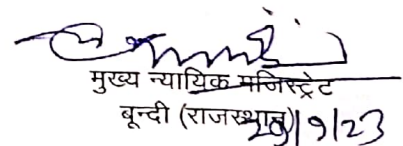 मुख्य न्यायिक मजिस्ट्रेट
बून्दी (राजस्थान)
29/9/23